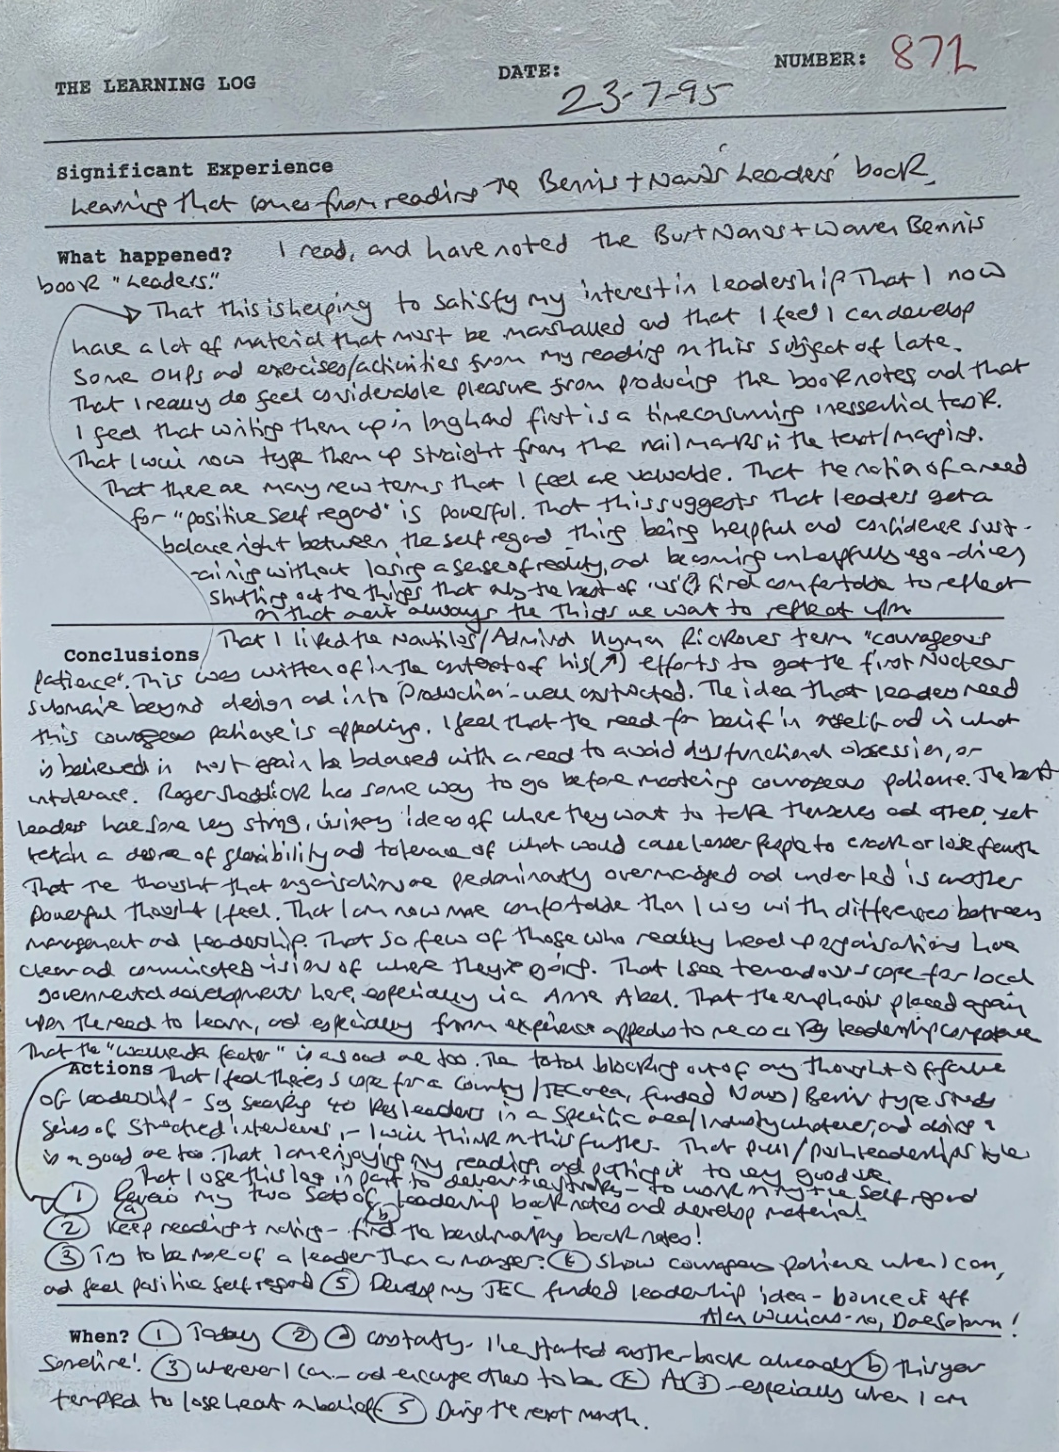 THE LEARNING LOG
DATE:
23-7-95
NUMBER: 871
Significant Experience
Learning that comes from reading the Bennis + Nanus 'Leaders' book.
What happened? I read, and have noted the Burt Nanus + Warren Bennis
book "Leaders."
That this is helping to satisfy my interest in leadership That I now
have a lot of material that must be marshalled and that I feel I can develop
some OHPs and exercises/activities from my reading on this subject of late.
That I really do feel considerable pleasure from producing the book notes, and that
I feel that writing them up in longhand first is a time consuming inessential task.
That I will now type them up straight from the nail marks in the text/margins.
That there are many new terms that I feel are valuable. That the notion of a need
for "positive self regard" is powerful. That this suggests that leaders get a
balance right between the self regard thing being helpful and confidence sust-
aining without losing a sense of reality, and becoming unhelpfully ego-driven,
shutting out the things that only the best of 'us'(?) find comfortable to reflect
on that aren't always the things we want to reflect upon
Conclusions That I liked the Nautilus/Admiral Hyman Rickover term "courageous
patience". This was written of in the context of his (↗) efforts to get the first Nuclear
submarine beyond design and into 'Production' - well constructed. The idea that leaders need
this courageous patience is appealing. I feel that the need for belief in oneself and in what
is believed in must again be balanced with a need to avoid dysfunctional obsession, or
intolerance. Roger has some way to go before mastering courageous patience. The best
leaders have some very strong, ideas of where they want to take themselves and others, yet
retain a degree of flexibility and tolerance of what would cause lesser people to crack or lose faith
That the thought that organisations are predominantly overmanaged and underled is another
powerful thought I feel. That I am now more comfortable than I was with differences between
management and leadership. That so few of those who really head up organisations have
clear and communicated visions of where they're going. That I see tremendous scope for local
governmental developments here, especially via Anne Abel. That the emphasis placed again
upon the need to learn, and especially from experience appeals to me as a key leadership competence
That the "Wallenda factor" is a good one too. The total blocking out of any thought of failure
Actions That I feel there is scope for a County/TEC area, funded Nanus/Bennis type study
of leadership - say seeking 40 key leaders in a specific area/Industry whatever, and doing a
series of structured interviews, - I will think on this further. That pull/push leadership style
is a good one too. That I am enjoying my reading and putting it to very good use.
That I use this log in part to - to work on my +ve self regard
① (a) my two sets of leadership book notes and develop material!
② Keep reading + noting - (b) find the benchmarking book notes!
③ Try to be more of a leader than a manager. ④ Show courageous patience when I can,
and feel positive self regard ⑤ Develop my TEC funded leadership idea - bounce it off
Alan Williams - no,
When? ① Today ② (a) constantly. I've started another book already (b) this year
sometime! ③ wherever I can - and encourage others to be ④ As ③ - especially when I am
tempted to lose heart or belief ⑤ During the next month.